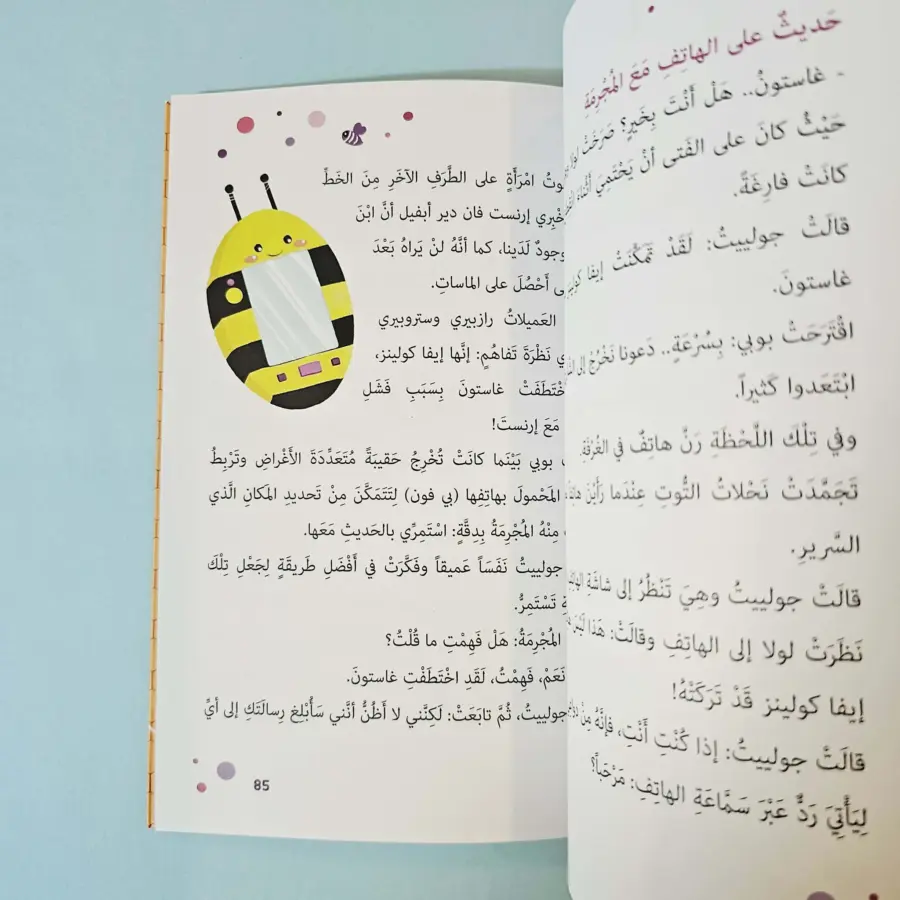 حَديثٌ على الهاتِفِ مَعَ المُجْرِمَةِ
- غاستونْ.. هَلْ أَنْتَ بِخَيرٍ؟ صَرَخَتْ لولا
حَيْثُ كانَ على الفَتى أنْ يَحْتَمِي أثْناءَ
كانَتْ فارِغَةً.
قالَتْ جولييتُ: لَقَدْ تَمَكَّنَتْ إيفا
غاستونَ.
اقْتَرَحَتْ بوبي: بِسُرْعَةٍ.. دَعونا نَخْرُجُ إلى
ابْتَعَدوا كَثيراً.
وفي تِلْكَ اللَّحْظَةِ رَنَّ هاتِفٌ في الغُرْفَةِ.
تَجَمَّدَتْ نَحْلاتُ التُّوتِ عِنْدَما رَأَيْنَ
السَّريرِ.
قالَتْ جولييتُ وهِيَ تَنْظُرُ إلى شاشَةِ
نَظَرَتْ لولا إلى الهاتِفِ وقالَتْ: هَذا لَيْسَ
إيفا كولينز قَدْ تَرَكَتْهُ!
قالَتْ جولييتُ: إذا كُنْتِ أَنْتِ، فإنَّهُ مِنْ
لِيَأْتِيَ رَدٌّ عَبْرَ سَمَّاعَةِ الهاتِفِ: مَرْحَباً؟
امْرَأَةٍ على الطَّرَفِ الآخَرِ مِنَ الخَطِّ
إرنست فان دير أبفيل أنَّ ابْنَ
لَدَينا، كما أنَّهُ لنْ يَراهُ بَعْدَ
أَحْصُلَ على الماساتِ.
العَميلاتُ رازبيري وستروبيري
نَظْرَةَ تَفاهُمٍ: إنَّها إيفا كولينز،
غاستونَ بِسَبَبِ فَشَلِ
مَعَ إرنستَ!
بوبي بَيْنَما كانَتْ تُخْرِجُ حَقيبَةً مُتَعَدِّدَةَ الأَغْراضِ وتَرْبِطُ
المَحْمولَ بهاتِفِها (بي فون) لِتَتَمَكَّنَ مِنْ تَحديدِ المَكانِ الَّذي
مِنْهُ المُجْرِمَةُ بِدِقَّةٍ: اسْتَمِرِّي بالحَديثِ مَعَها.
جولييتُ نَفَسَاً عَميقاً وفَكَّرَتْ في أَفْضَلِ طَريقَةٍ لِجَعْلِ تِلْكَ
تَسْتَمِرُّ.
المُجْرِمَةُ: هَلْ فَهِمْتِ ما قُلْتُ؟
نَعَمْ، فَهِمْتُ، لَقَدِ اخْتَطَفْتِ غاستونَ.
جولييتُ، ثُمَّ تابَعَتْ: لَكِنَّني لا أَظُنُّ أنَّني سَأُبْلِغ رِسالَتَكِ إلى أيِّ
85